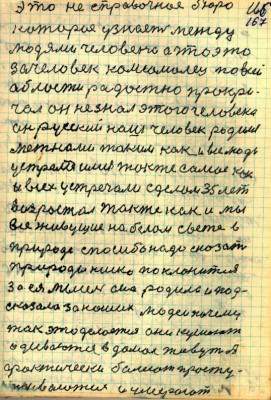 это не справочная бюро
которая узнает между
людями человека а то это
за человек комсомолец по всей
области радостно прокри-
чал он не знал этого человека
он русский наш человек родился
таким как и все люди
также самое как
и всех устречали с делом 35 лет
возростал также как и мы
все живущие на белом свете в
природе способы надо сказать
природы низко поклонится
за ея она родила и под-
сказала за наших людей почему
так это делается они кушают
одиваются в домах живут и
практически балеют просту-
живаются и умерают
167